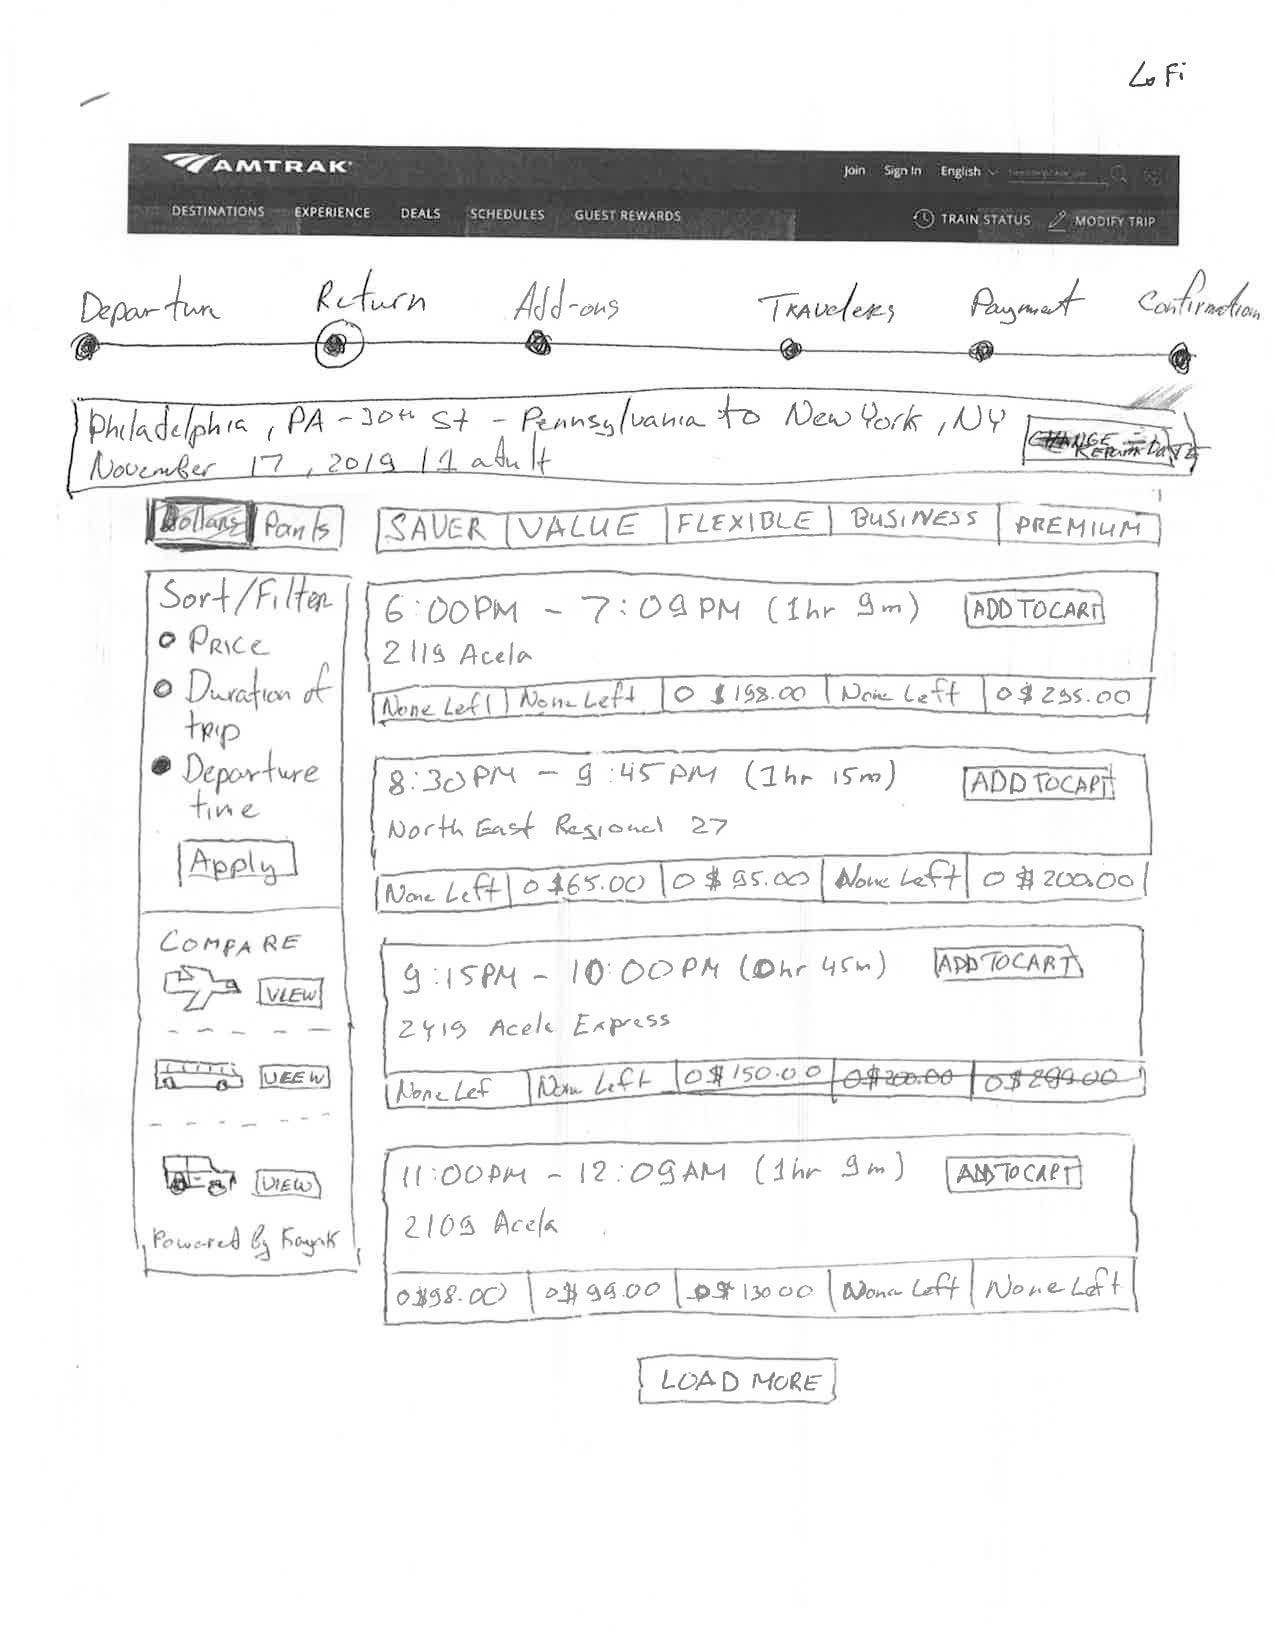 Lo Fi
AMTRAK
Join Sign In English
DESTINATIONS EXPERIENCE DEALS SCHEDULES GUEST REWARDS TRAIN STATUS MODIFY TRIP
Departure Return Add-ons Travelers Payment Confirmation
Philadelphia, PA - 30th St - Pennsylvania to New York, NY
November 17, 2019 | 1 adult
CHANGE RETURN DATE
Dollars Points
SAVER VALUE FLEXIBLE BUSINESS PREMIUM
Sort/Filter
Price
Duration of
trip
Departure
time
Apply
COMPARE
VIEW
VIEW
VIEW
Powered By Kayak
6:00PM - 7:09PM (1hr 9m) ADD TO CART
2119 Acela
None Left None Left O $198.00 None Left O $295.00
8:30PM - 9:45PM (1hr 15m) ADD TO CART
North East Regional 27
None Left O $65.00 O $95.00 None Left O $200.00
9:15PM - 10:00PM (0hr 45m) ADD TO CART
2419 Acela Express
None Lef None Left O $150.00 O $200.00 O $299.00
11:00PM - 12:09AM (1hr 9m) ADD TO CART
2109 Acela
O $98.00 O $99.00 O $130.00 None Left None Left
LOAD MORE